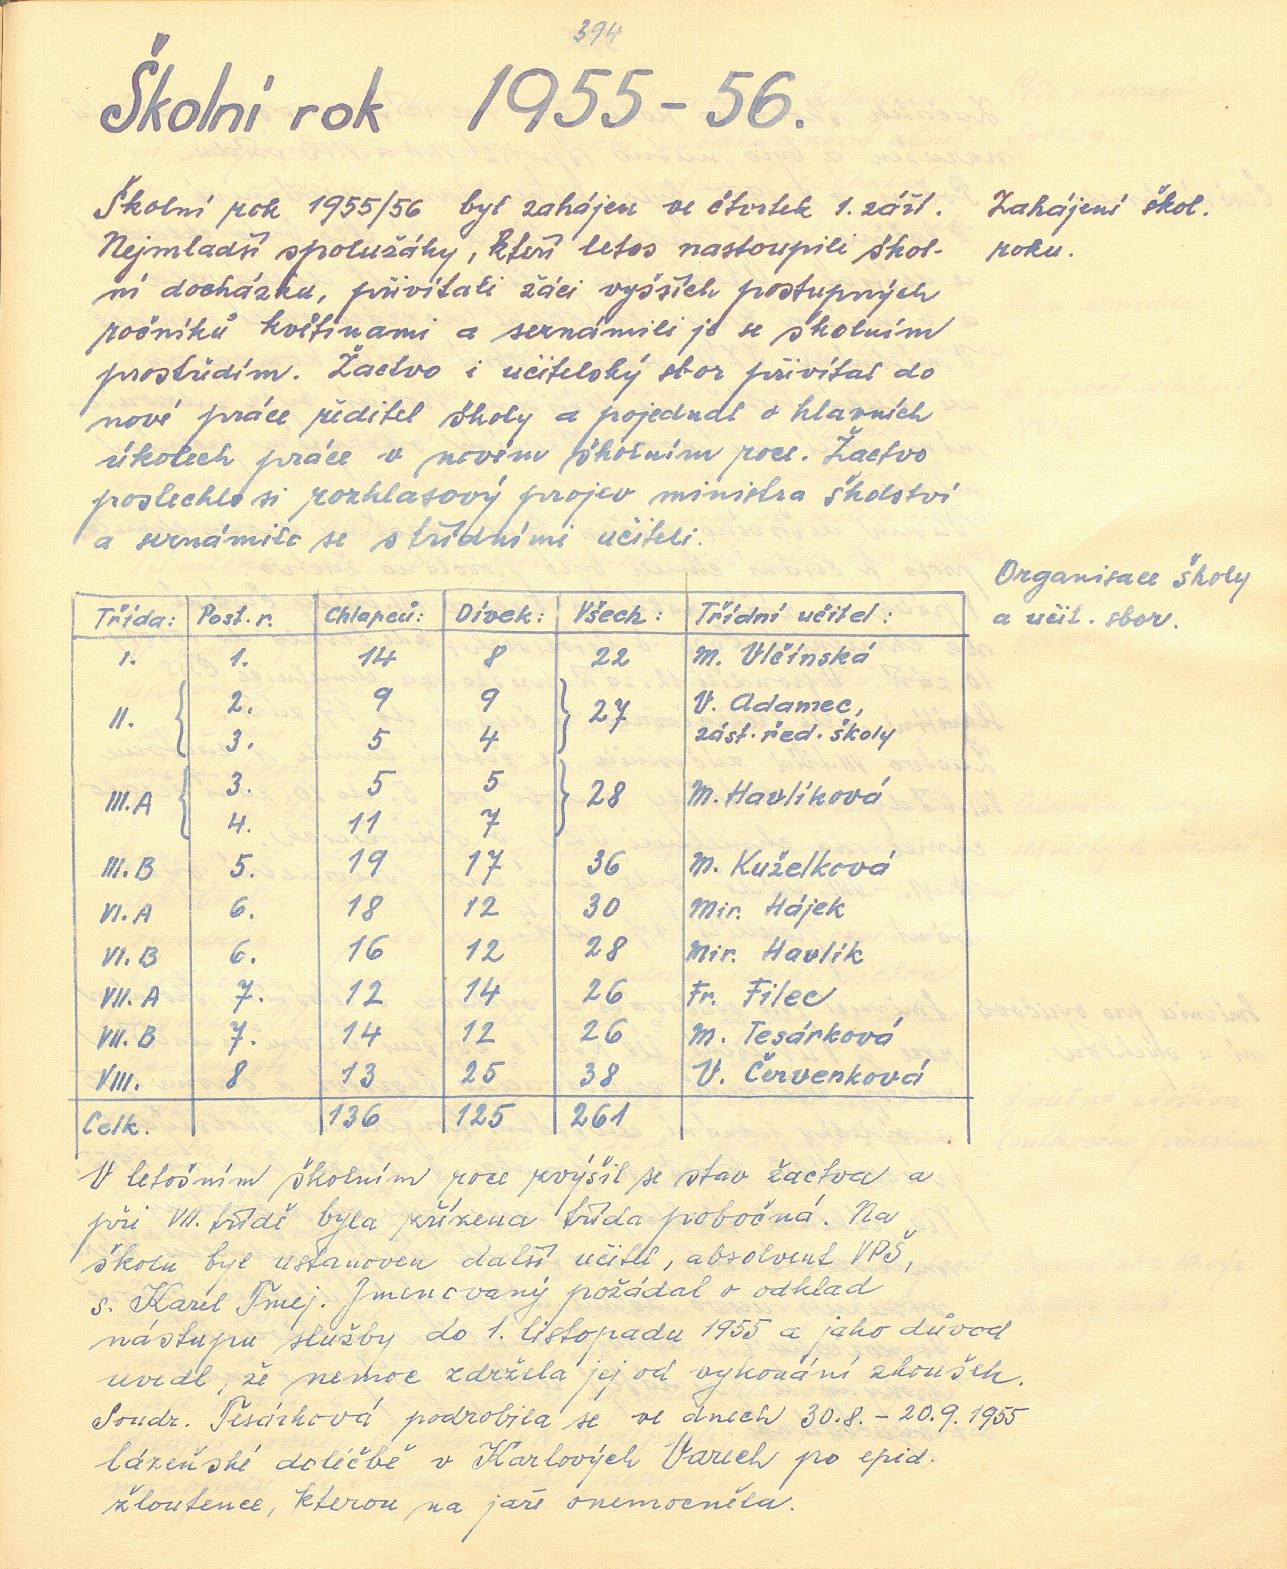 394
Školní rok 1955-56.
Školní rok 1955/56 byl zahájen ve čtvrtek 1. září.
Zahájení škol.
roku.
Nejmladší spolužáky, kteří letos nastoupili škol-
ní docházku, přivítali žáci vyšších postupných
ročníků květinami a seznámili je se školním
prostředím. Žactvo i učitelský sbor přivítal do
nové práce ředitel školy a pojednal o hlavních
úkolech práce v novém školním roce. Žactvo
poslechlo si rozhlasový projev ministra školství
a seznámilo se s třídními učiteli.
Organisace školy
a učit. sbor.
Třída: Post. r. Chlapců: Dívek: Všech: Třídní učitel:
I. 1. 14 8 22 M. Vlčinská
II. 2. 9 9 27 V. Adamec,
3. 5 4 zást. řed. školy
III.A 3. 5 5 28 M. Havlíková
4. 11 7
III.B 5. 19 17 36 M. Kuželková
VI.A 6. 18 12 30 Mir. Hájek
VI.B 6. 16 12 28 Mir. Havlík
VII.A 7. 12 14 26 Fr. Filec
VII.B 7. 14 12 26 M. Tesárková
VIII. 8 13 25 38 V. Červenková
Celk. 136 125 261
V letošním školním roce zvýšil se stav žactva a
při VII. třídě byla zřízena třída pobočná. Na
školu byl ustanoven další učitel, absolvent VPŠ,
s. Karel Tmej. Jmenovaný požádal o odklad
nástupu služby do 1. listopadu 1955 a jako důvod
uvedl, že nemoc zdržela jej od vykonání zkoušek.
Soudr. Tesárková podrobila se ve dnech 30.8. - 20.9. 1955
lázeňské doléčbě v Karlových Varech po epid.
žloutence, kterou na jaře onemocněla.